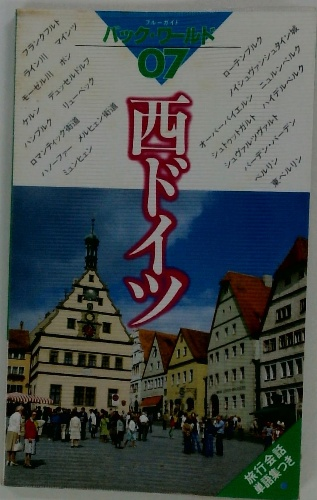 ブルーガイド
パック・ワールド
07
西ドイツ
フランクフルト マインツ
ライン川 ボン
モーゼル川 デュッセルドルフ
ケルン リューベック
ハンブルク
ロマンティック街道
ハノーファー メルヒェン街道
ミュンヒェン
ローテンブルク
ノイシュヴァンシュタイン城
オーバーバイエルン ニュルンベルク
シュトゥットガルト ハイデルベルク
シュヴァルツヴァルト
バーデン・バーデン
ベルリン
東ベルリン
旅行会話
単語集つき